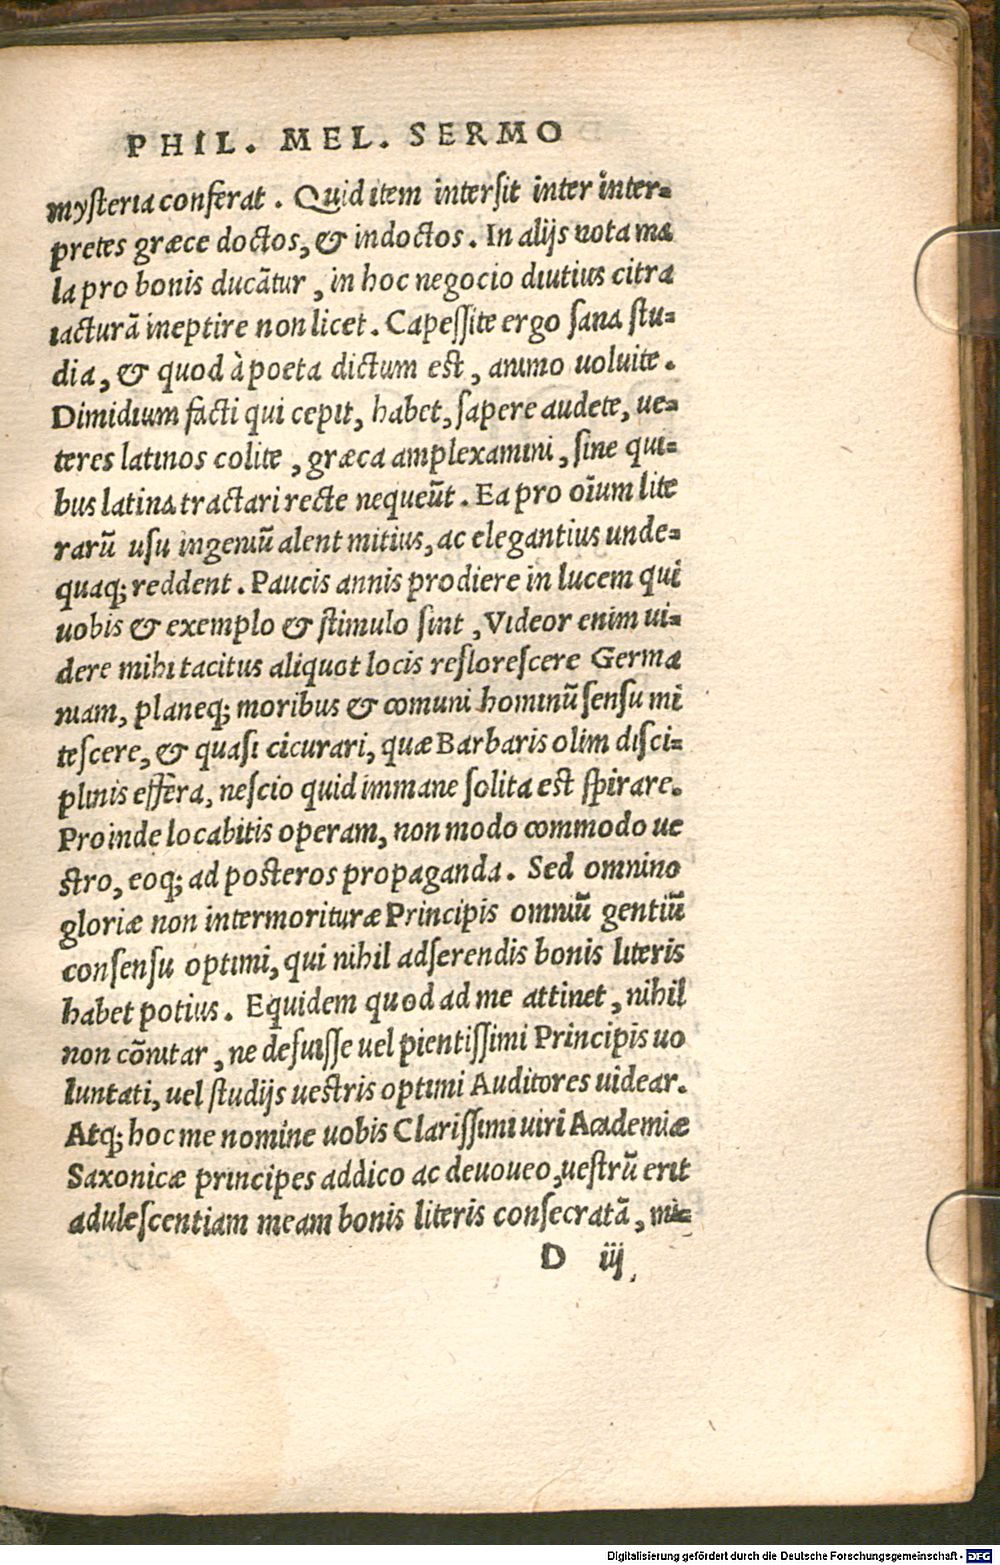 PHIL. MEL. SERMO
mysteria conferat. Quid item intersit inter inter-
pretes græce doctos, & indoctos. In alijs nota ma
la pro bonis ducātur, in hoc negocio diutius citra
iacturā ineptire non licet. Capessite ergo sana stu-
dia, & quod à poeta dictum est, animo uoluite.
Dimidium facti qui cepit, habet, sapere audete, ue-
teres latinos colite, græca amplexamini, sine qui-
bus latina tractari recte nequeūt. Ea pro oīum lite
rarū usu ingeniū alent mitius, ac elegantius unde-
quaq; reddent. Paucis annis prodiere in lucem qui
uobis & exemplo & stimulo sint, Videor enim ui-
dere mihi tacitus aliquot locis reflorescere Germa
niam, planeq; moribus & comuni hominū sensu mi
tescere, & quasi cicurari, quæ Barbaris olim disci-
plinis effera, nescio quid immane solita est spirare.
Proinde locabitis operam, non modo commodo ue
stro, eoq; ad posteros propaganda. Sed omnino
gloriæ non intermorituræ Principis omniū gentiū
consensu optimi, qui nihil adserendis bonis literis
habet potius. Equidem quod ad me attinet, nihil
non cōnitar, ne defuisse uel pientissimi Principis uo
luntati, uel studijs uestris optimi Auditores uidear.
Atq; hoc me nomine uobis Clarissimi uiri Academiæ
Saxonicæ principes addico ac deuoueo, uestrū erit
adulescentiam meam bonis literis consecratā, mi-
D iij
Digitalisierung gefördert durch die Deutsche Forschungsgemeinschaft - DFG